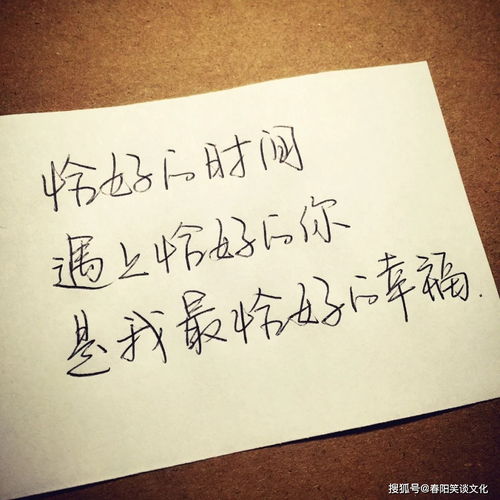 恰好的时间
遇上恰好的你
是我最恰好的幸福.
搜狐号@春阳笑谈文化